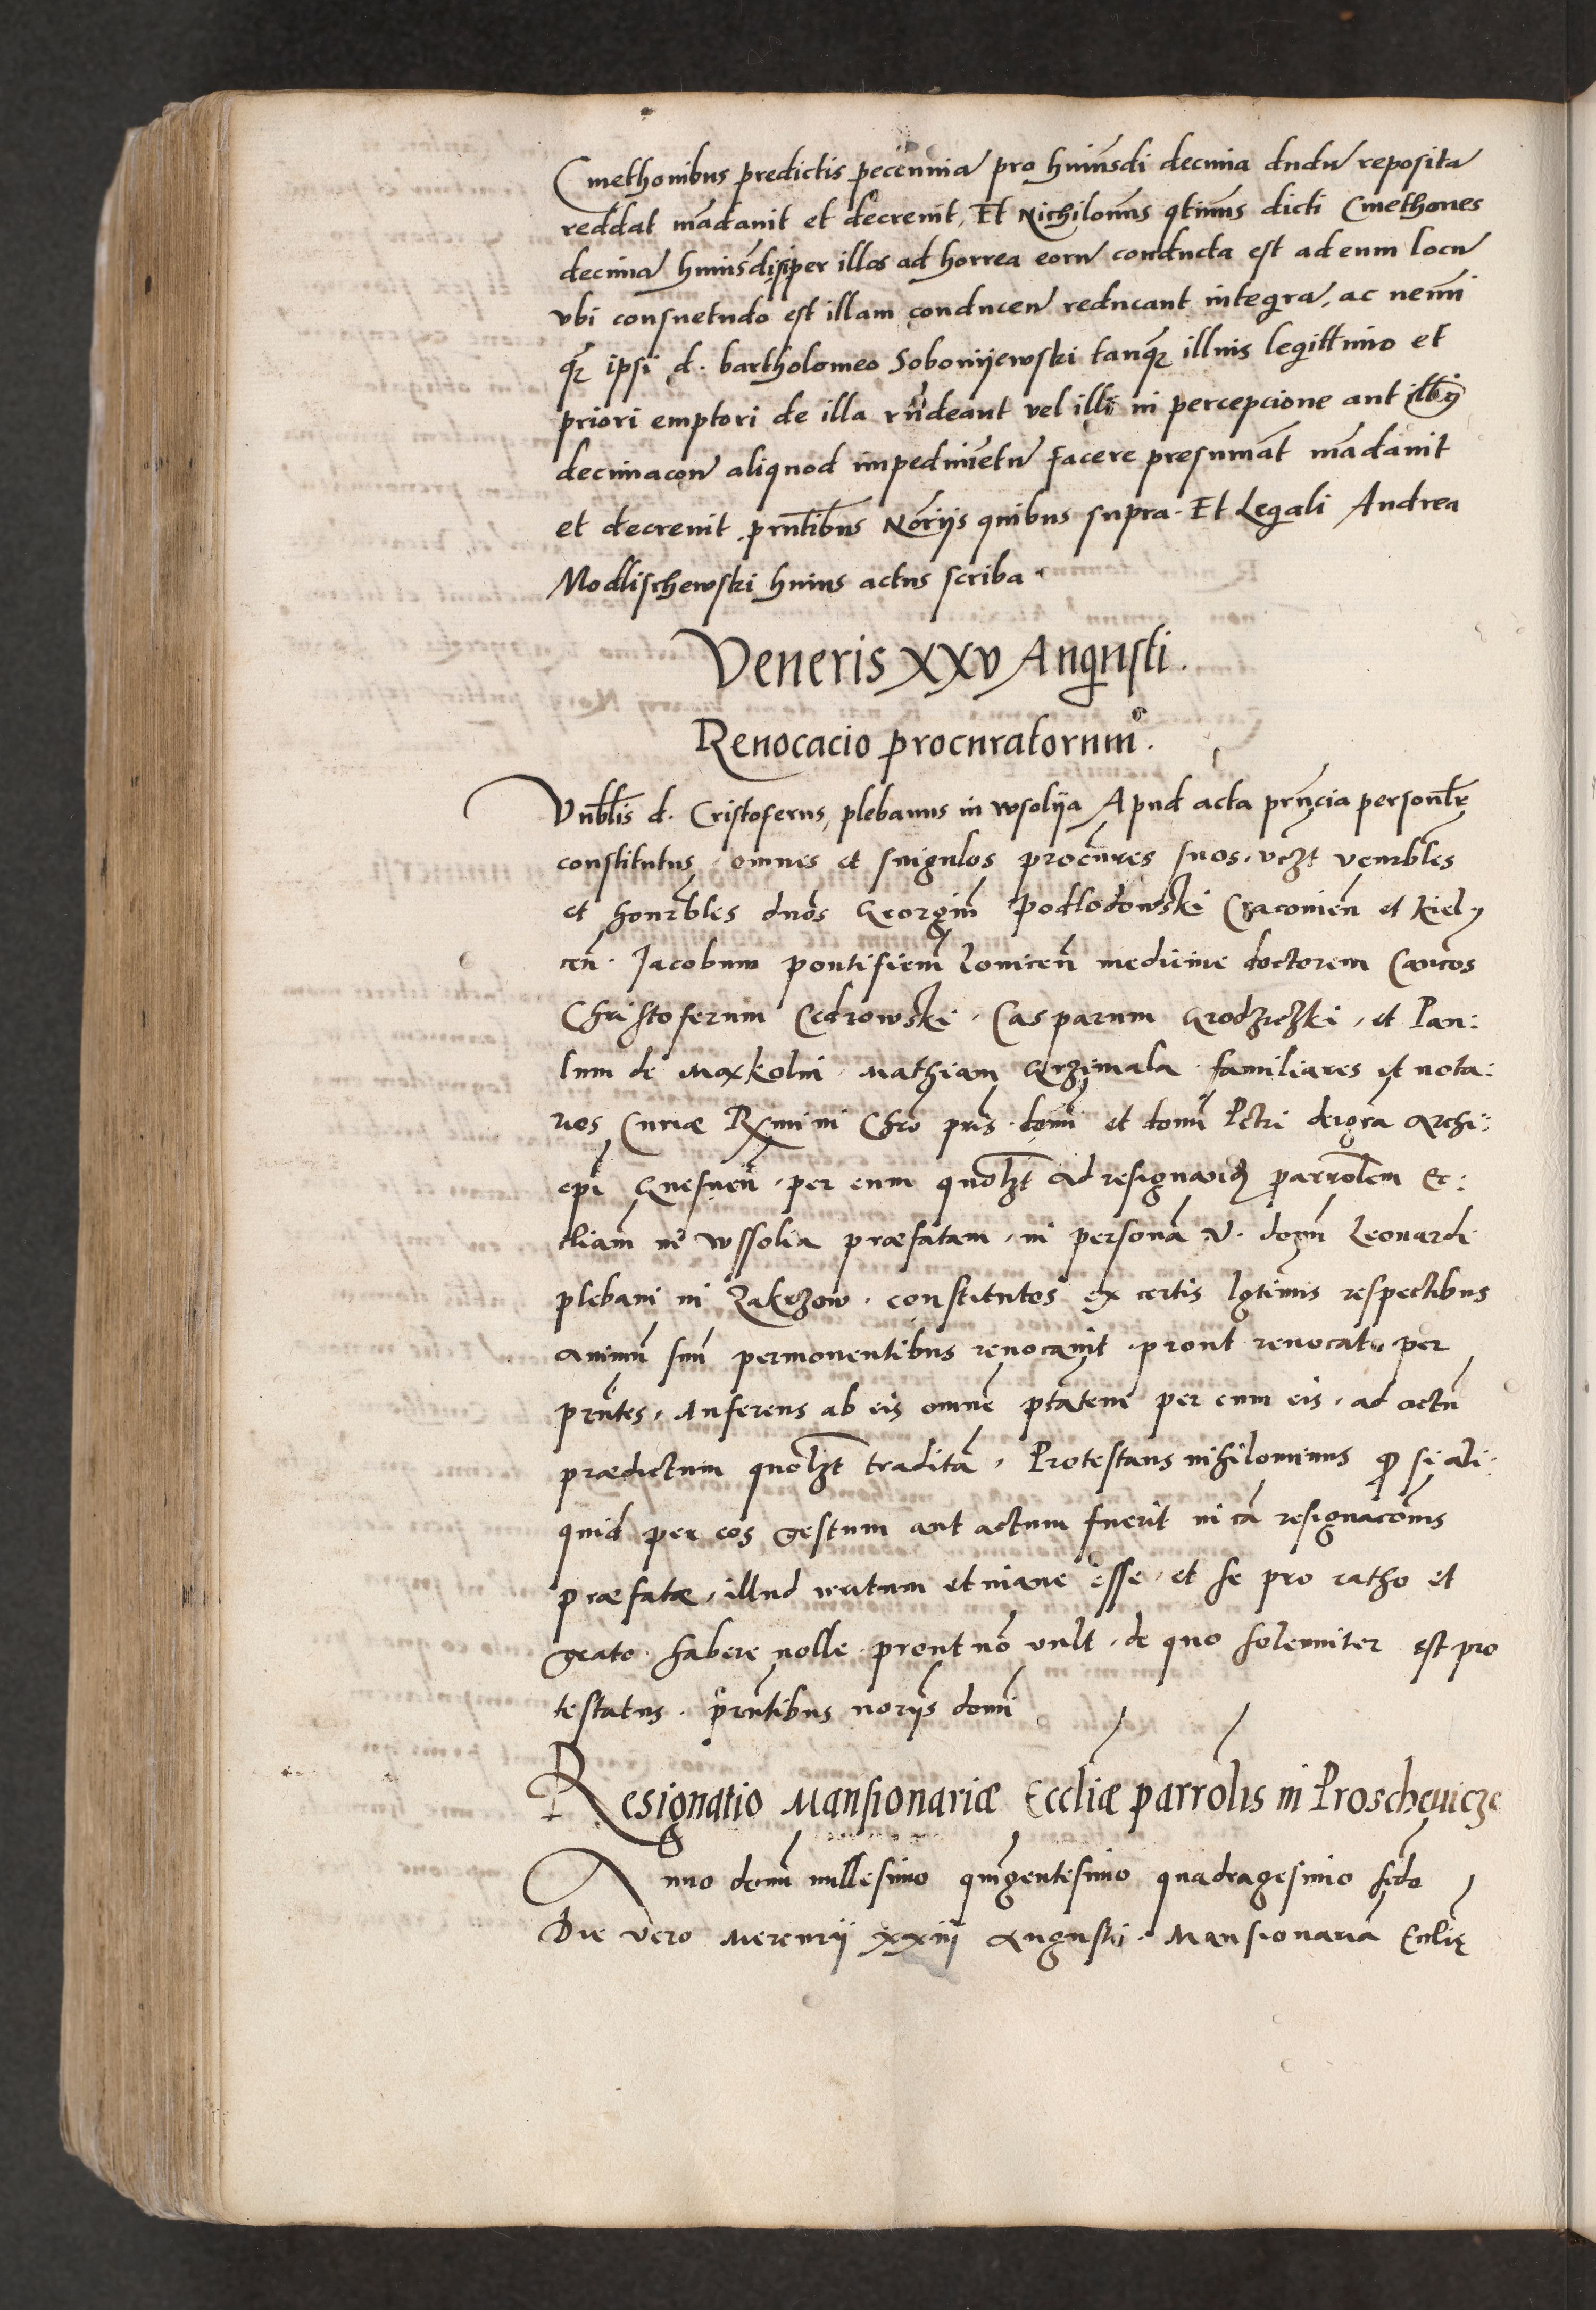 Cmethonibus predictis pecunnia pro huiusdi decima dudu reposita
reddat madauit et decreuit, Et Nichilomus qtinus dicti Cmethones
decima huiusdi siper illos ad horrea eoru conducta est ad eum locu
vbi consuetudo est illam conducen reducant integra, ac nemi
qz ipsi d. bartholomeo Sobonijewski tanqz illius legittimo et
priori emptori de illa rndeant vel illi in percepcione aut
decimacon aliquod impedimetu facere presumat madauit
et decreuit prntibus Norijs quibus supra. Et Legali Andrea
Modlischewski huius actus scriba.
Veneris XXV Augusti.
Reuocacio procuratorum.
Vnblis d. Cristoferus, plebanus in wsolija Apud acta prncia personlr
constitutus, omnes et singulos procures suos, vczt venrbles
et honrbles dnos Georgiu Podlodowski Cracouien et Kiel
cen. Jacobum pontifiem louicen medicine doctorem Canicos
Christoferum Cedrowski, Casparum Grodziczki, et Pau:
lum de Maxkolni, Mathiam Grzimala familiares et nota:
rios Curiæ Rssmi in Chro pris domi et domi Petri dei gra Archi:
epi Gnesnen, per eum quolzt ad resignand parrolem Ec:
cliam in wssolia præfatam, in persona V. domi Leonardi
plebani in Zakrzow, constitutos ex certis lgtimis respectibus
animu suu permouentibus reuocauit, prout reuocat per
prntes, Auferens ab eis omne ptatem per eum eis, ad actu
prædictum quolzt tradita, Protestans nihilominus si ali:
quid per eos gestum aut actum fuerit in ca resignaconis
præfatæ, illud irritum et inane esse, et se pro ratho et
grato habere nolle prout no vult, de quo solenniter est pro
testatus, prntibus norijs domi
Resignatio Mansionariæ Eccliæ parrolis in Proschewicze
Anno domi millesimo quingentesimo quadragesimo scdo
Die vero Mercurij xxiij Augusti. Mansionaria Ecclię